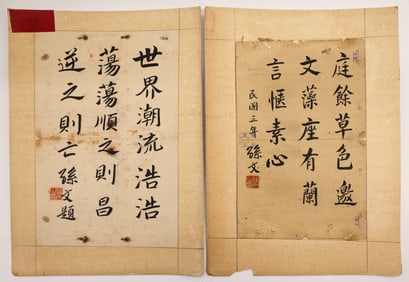 庭餘草色邀
文藻座有蘭
言愜素心
民國三年 孫文
世界潮流浩浩
蕩蕩順之則昌
逆之則亡 孫文題